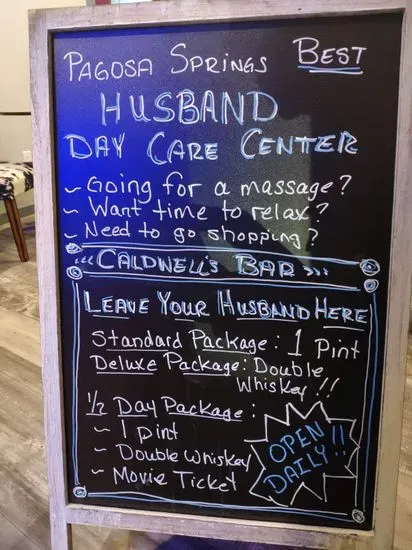 PAGOSA SPRINGS BEST
HUSBAND
DAY CARE CENTER
~ Going for a massage?
~ Want time to relax?
~ Need to go shopping?
‹‹‹ CALDWELL'S BAR ›››
LEAVE YOUR HUSBAND HERE
Standard Package: 1 pint
Deluxe Package: Double
Whiskey!!
1/2 Day Package:
~ 1 pint
~ Double Whiskey
~ Movie Ticket
OPEN
DAILY!!